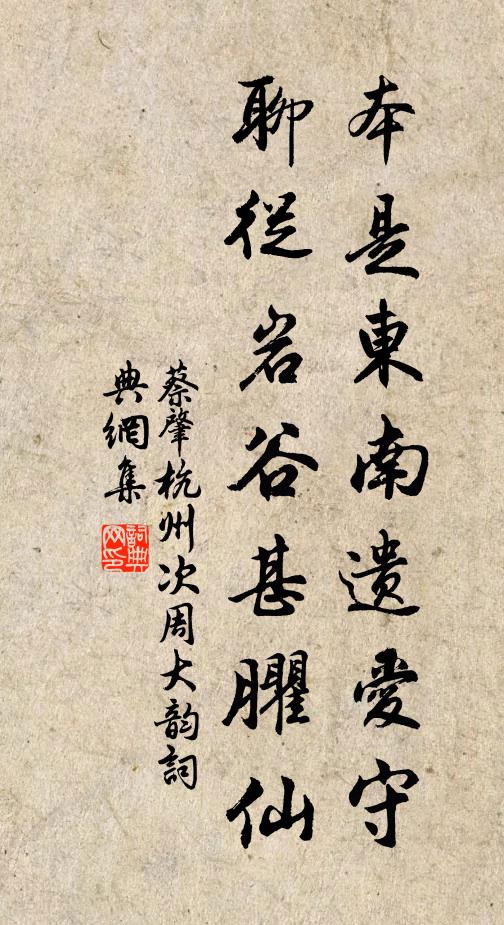 本是東南遺愛守
聊從岩谷甚臞仙
蔡肇杭州次周大韵詞
典網集
詞典
网印